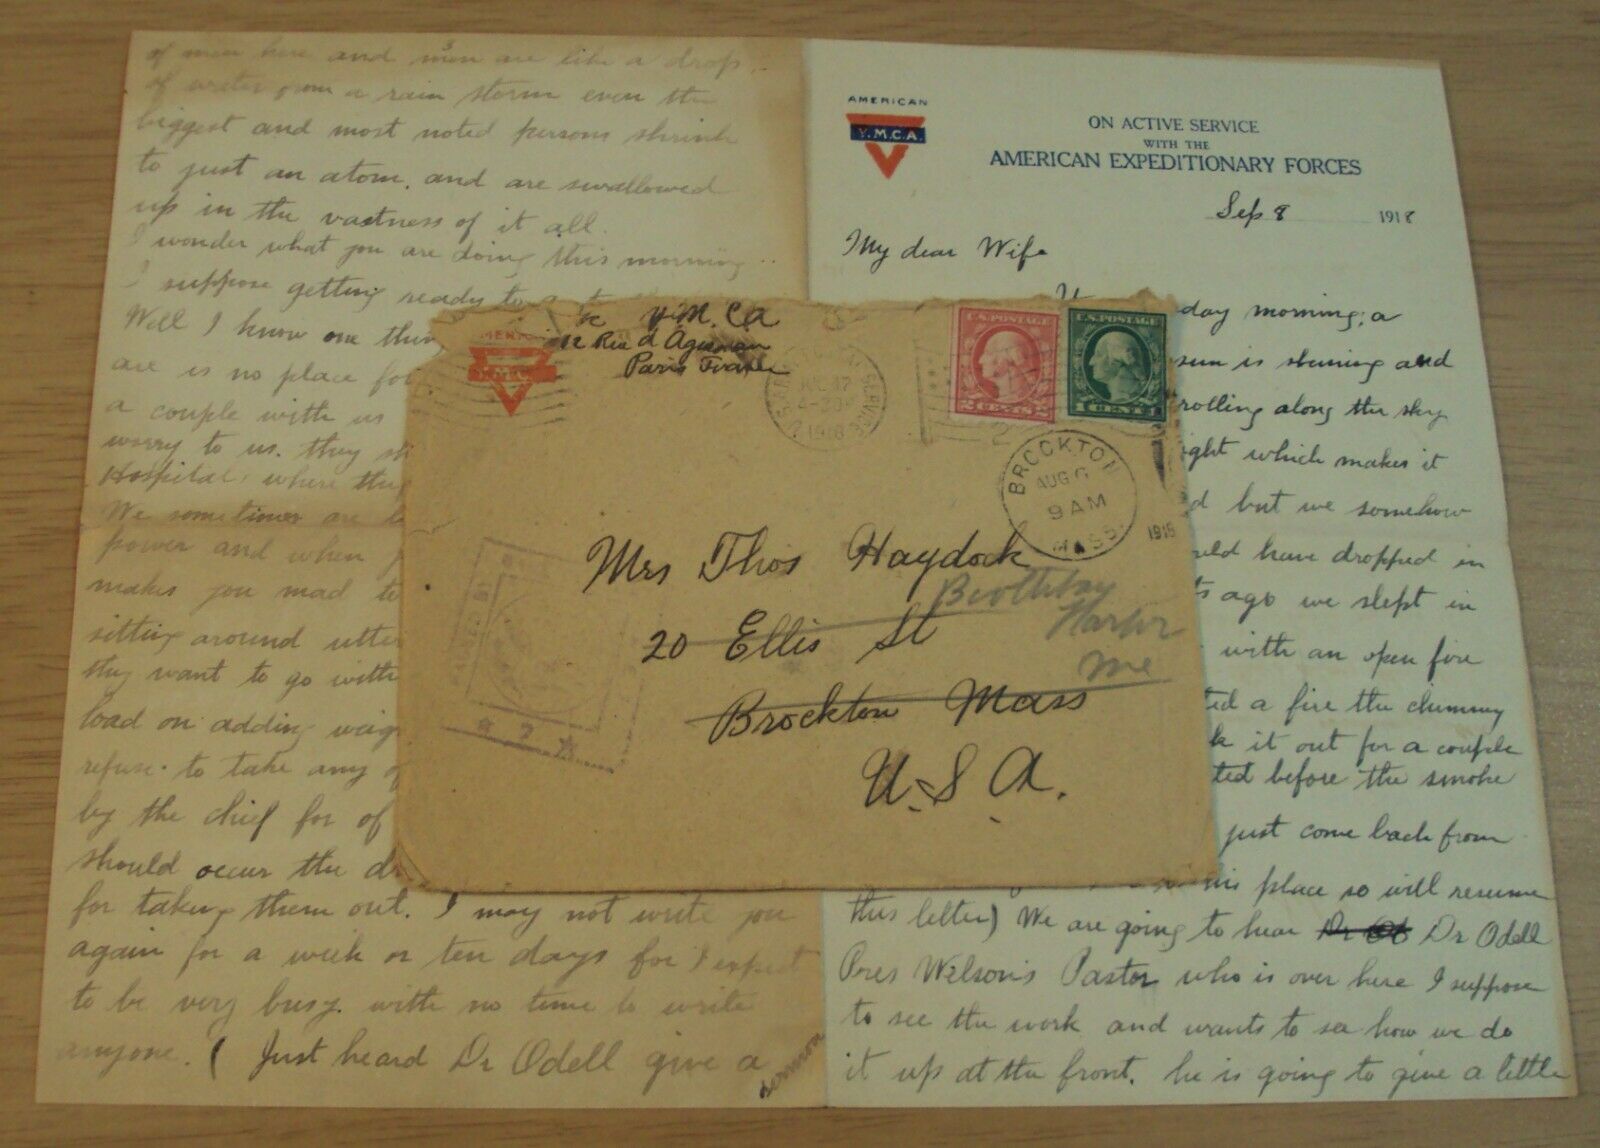 of men here and men are like a drop
of water from a rain storm even the
biggest and most noted persons shrink
to just an atom, and are swallowed
up in the vastness of it all.
I wonder what you are doing this morning..
I suppose getting ready to
Well I know one
are is no place
a couple with us
worry to us. they
Hospital, where
We sometimes are
power and when
makes you mad
sitting around
they want to go with
load on adding
refuse to take any
by the chief for
should occur the
for taking them out. I may not write you
again for a week or ten days for I expect
to be very busy with no time to write
anyone. ( Just heard Dr Odell give a
sermon
AMERICAN
Y.M.C.A.
ON ACTIVE SERVICE
WITH THE
AMERICAN EXPEDITIONARY FORCES
Sep 8 1918
My dear Wife
day morning, a
sun is shining and
rolling along the sky
which makes it
but we somehow
have dropped in
ago we slept in
with an open fire
a fire the chimney
it out for a couple
before the smoke
just come back from
place so will resume
this letter) We are going to hear Dr Odell
Pres Wilson's Pastor who is over here I suppose
to see the work and wants to see how we do
it up at the front. he is going to give a little
Y.M.CA
12 Rue d
Paris France
1918
U.S. POSTAGE
2 CENTS 2
U.S. POSTAGE
1 CENT 1
BROCKTON
AUG 6
9 AM
MASS.
1918
Mrs Thos Haydock
20 Ellis St
Brockton Mass
U.S.A.
Harbor
Me